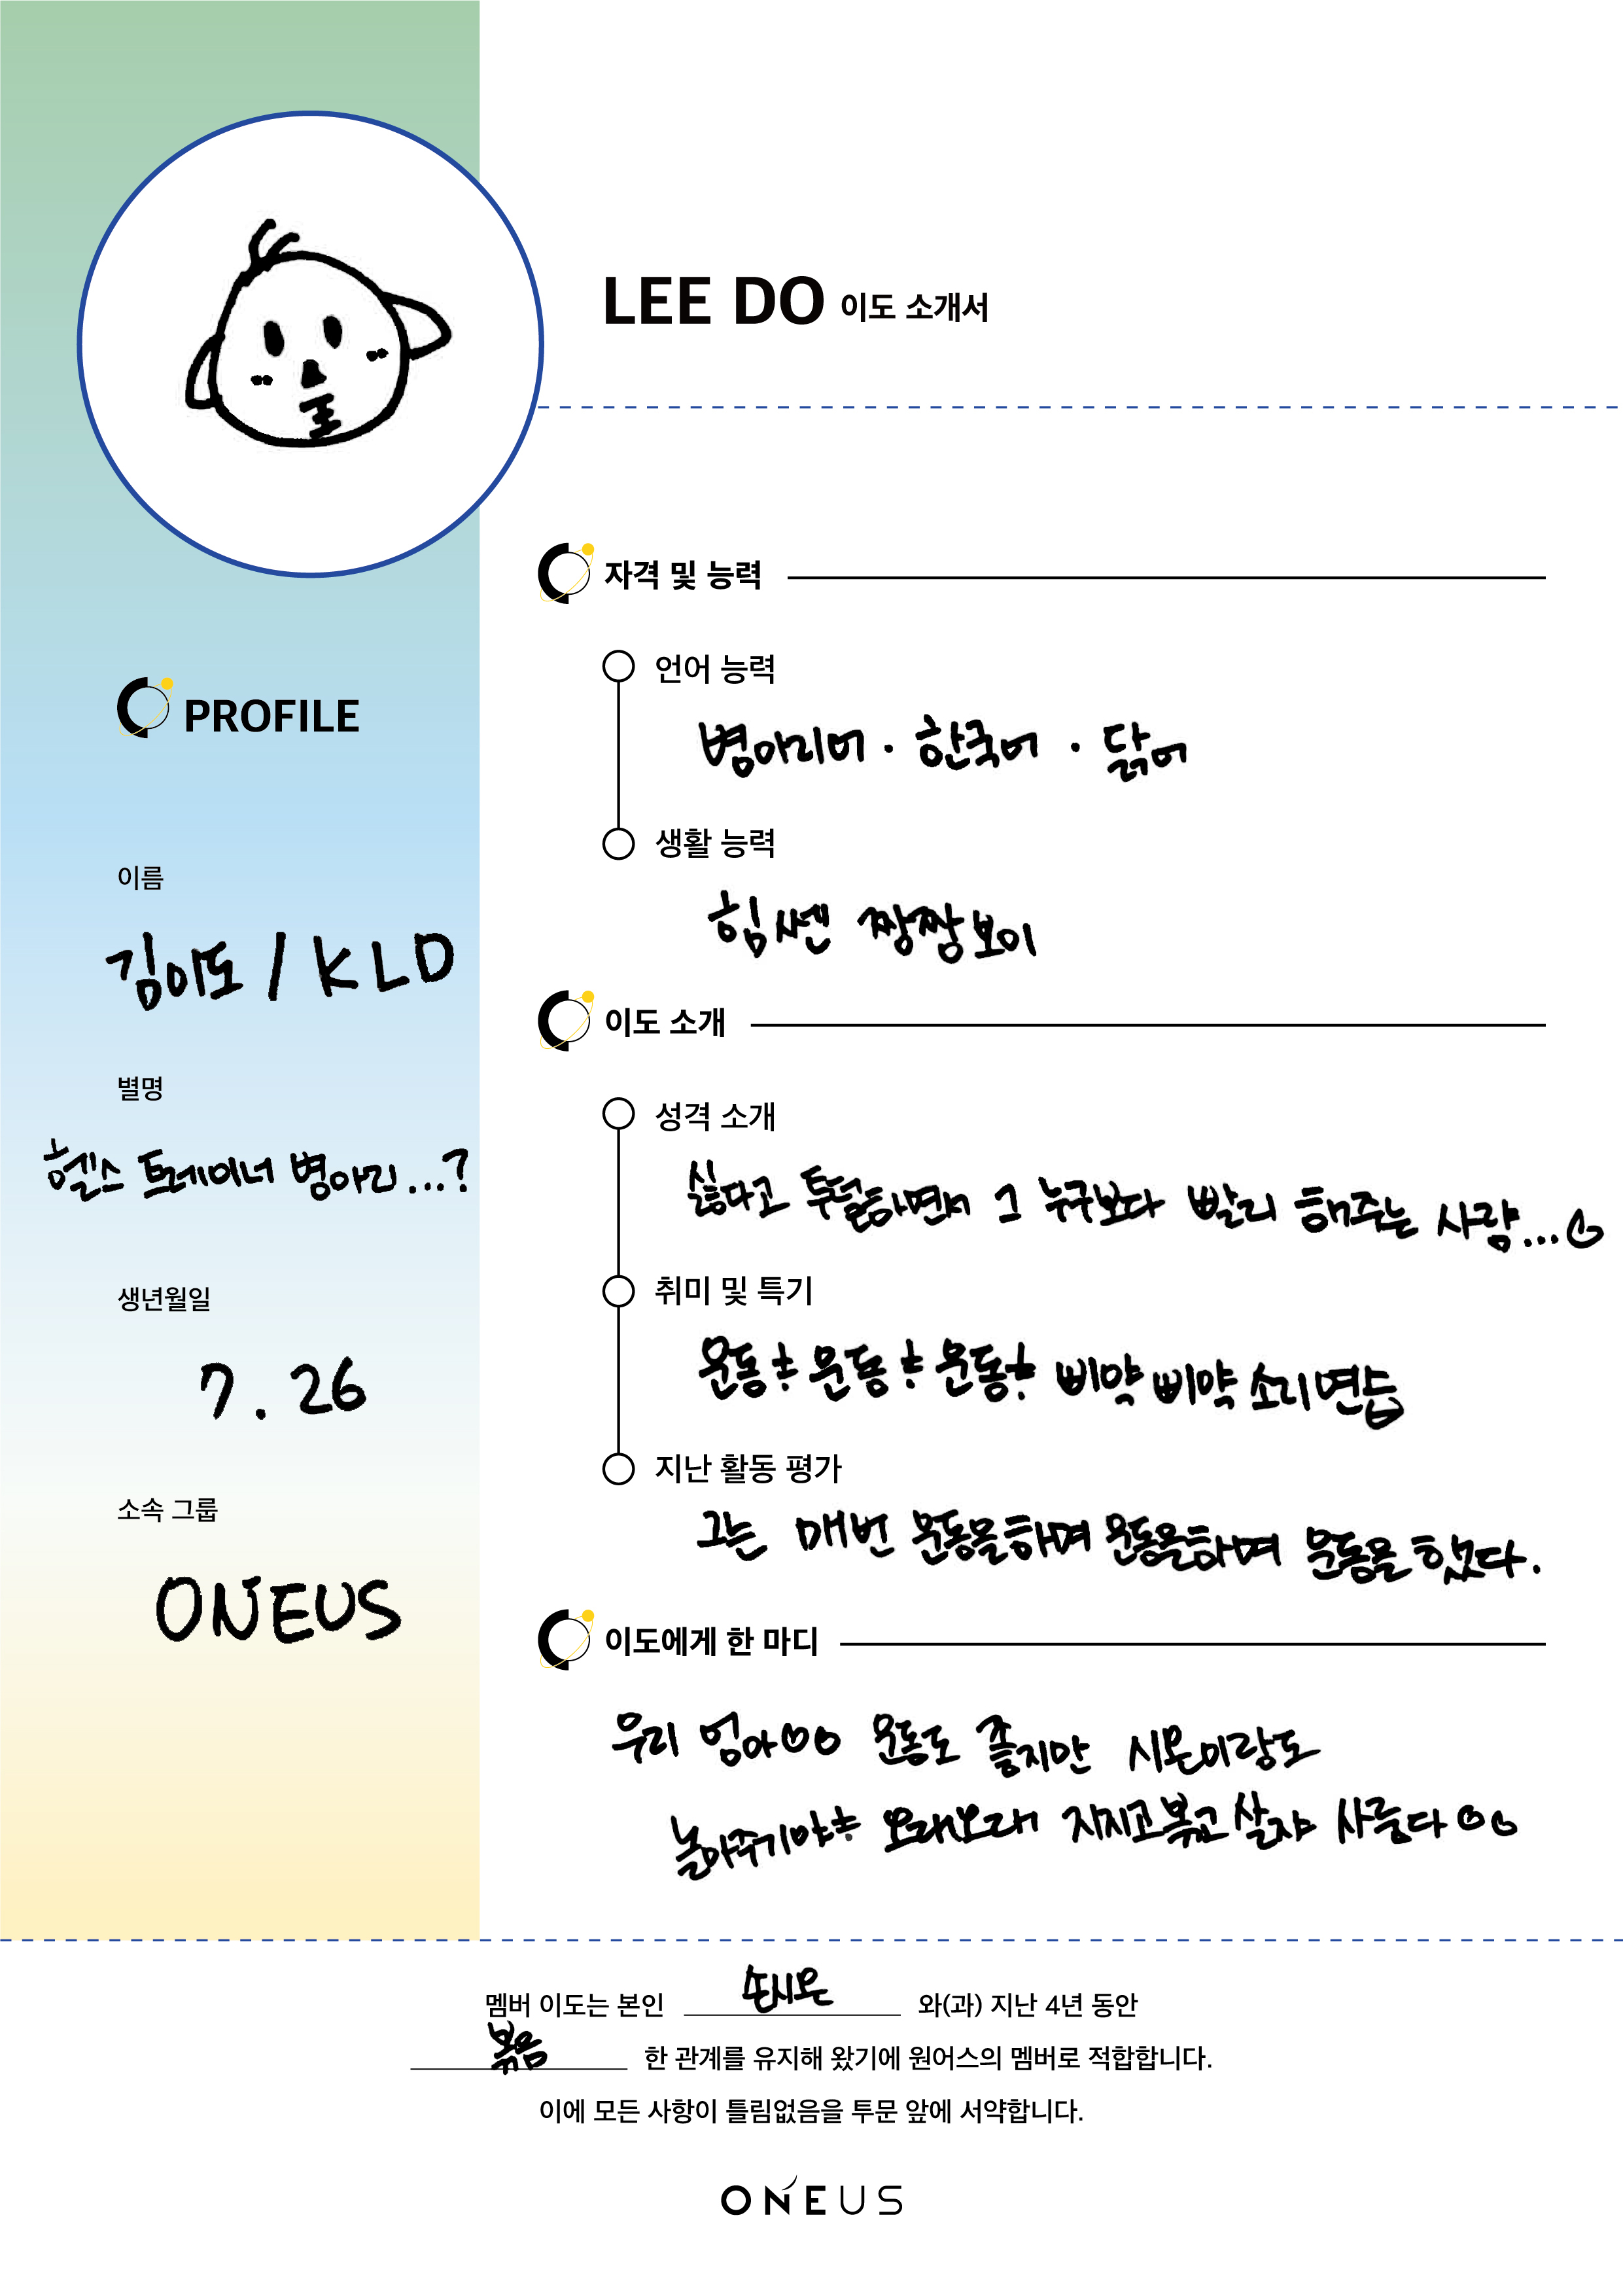 LEE DO 이도 소개서
PROFILE
이름
김이도 / KLD
별명
헬스 트레이너 병아리...?
생년월일
7. 26
소속 그룹
ONEUS
자격 및 능력
언어 능력
병아리어 · 한국어 · 닭어
생활 능력
힘쎈 짱짱보이
이도 소개
성격 소개
싫다고 투덜하면서 그 누구보다 빨리 해주는 사람...
취미 및 특기
운동! 운동! 운동! 삐약삐약 소리연습
지난 활동 평가
그는 매번 운동을하며 운동을하며 운동을 했다.
이도에게 한 마디
우리 엄마 운동도 좋지만 시온이랑도
놀아주기야! 오래오래 지지고볶고 살쟈 사릉다
멤버 이도는 본인 손시온 와(과) 지난 4년 동안
볶음 한 관계를 유지해 왔기에 원어스의 멤버로 적합합니다.
이에 모든 사항이 틀림없음을 투문 앞에 서약합니다.
ONEUS